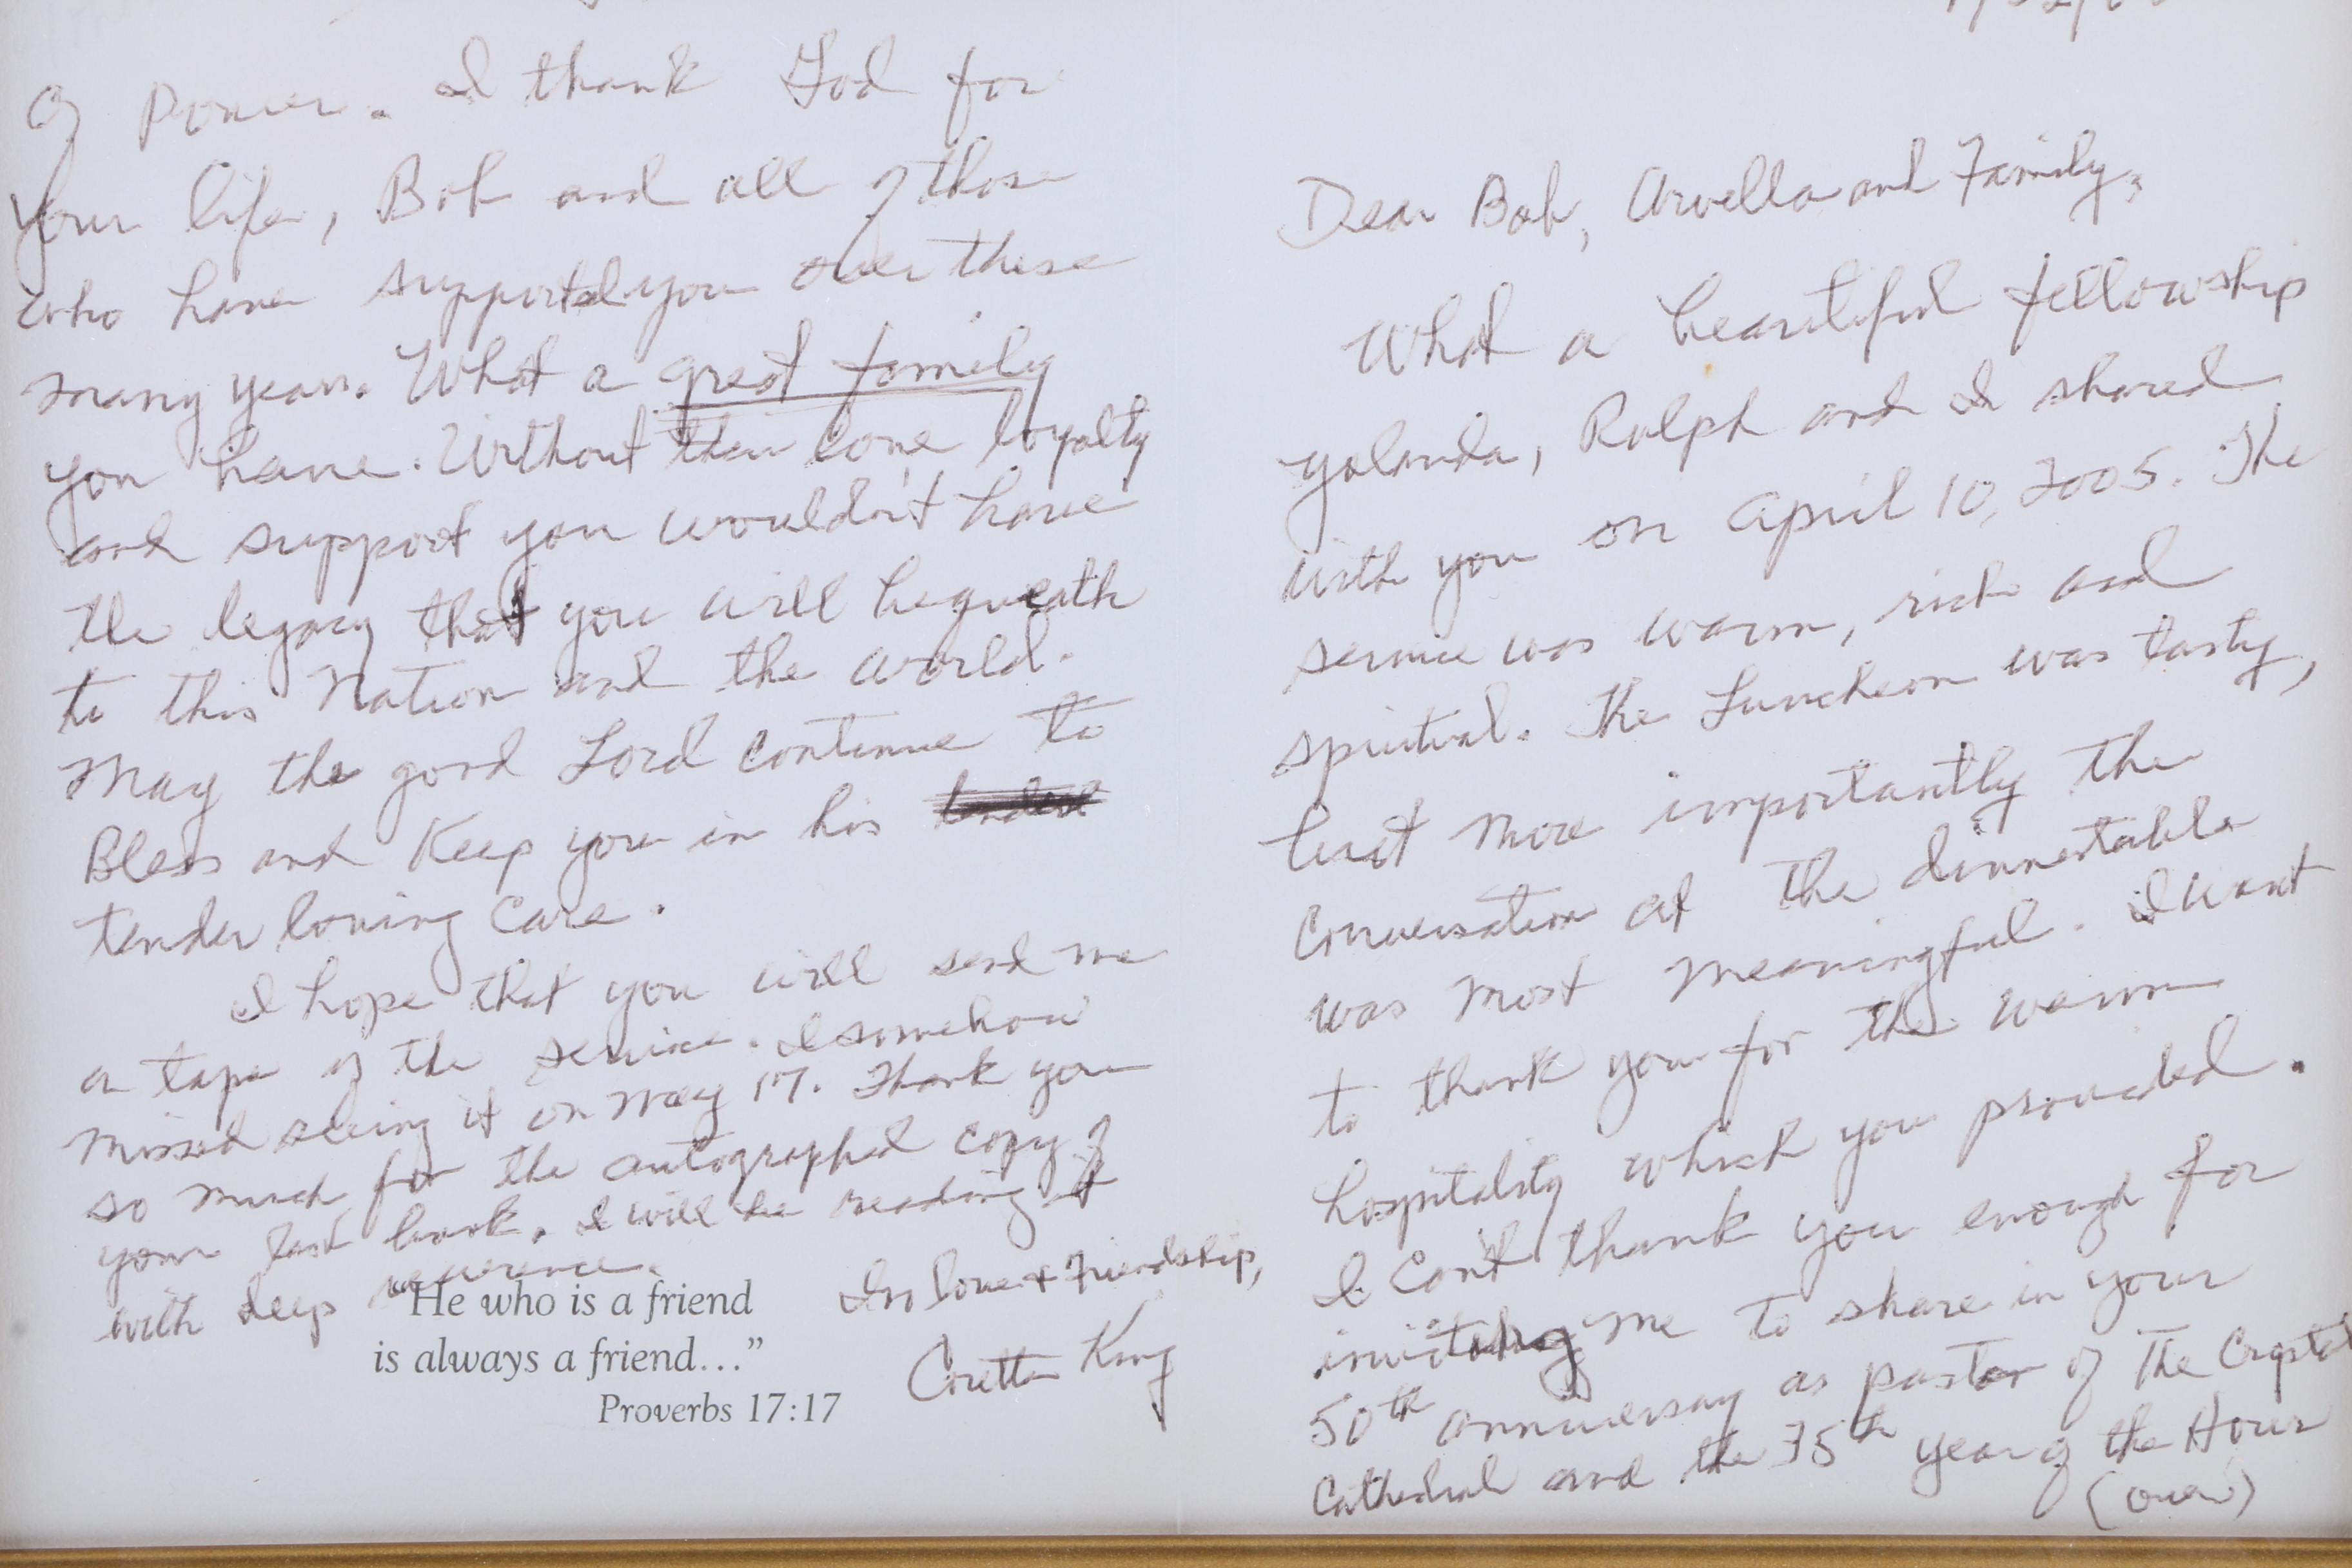 Dear Bob, Arvella and Family,
What a beautiful fellowship
Yolanda, Ralph and I shared
with you on April 10, 2005. The
service was warm, rich and
spiritual. The Luncheon was tasty,
but more importantly the
conversation at the dinnertable
was most meaningful. I want
to thank you for the warm
hospitality which you provided.
I can't thank you enough for
inviting me to share in your
50th anniversay as pastor of The Crystal
Cathedral and the 35th year of the Hour
(over)
Of Power. I thank God for
your life, Bob and all of those
who have supported you over these
many years. What a great family
you have. Without their love loyalty
and support you wouldn't have
the legacy that you will bequeath
to this Nation and the world.
May the good Lord continue to
Bless and Keep you in his
tender loving care.
I hope that you will send me
a tape of the service. I somehow
missed seeing it on May 17. Thank you
so much for the autographed copy of
your last book. I will be reading it
with deep reverence.
In love & Friendship,
Coretta King
"He who is a friend
is always a friend..."
Proverbs 17:17